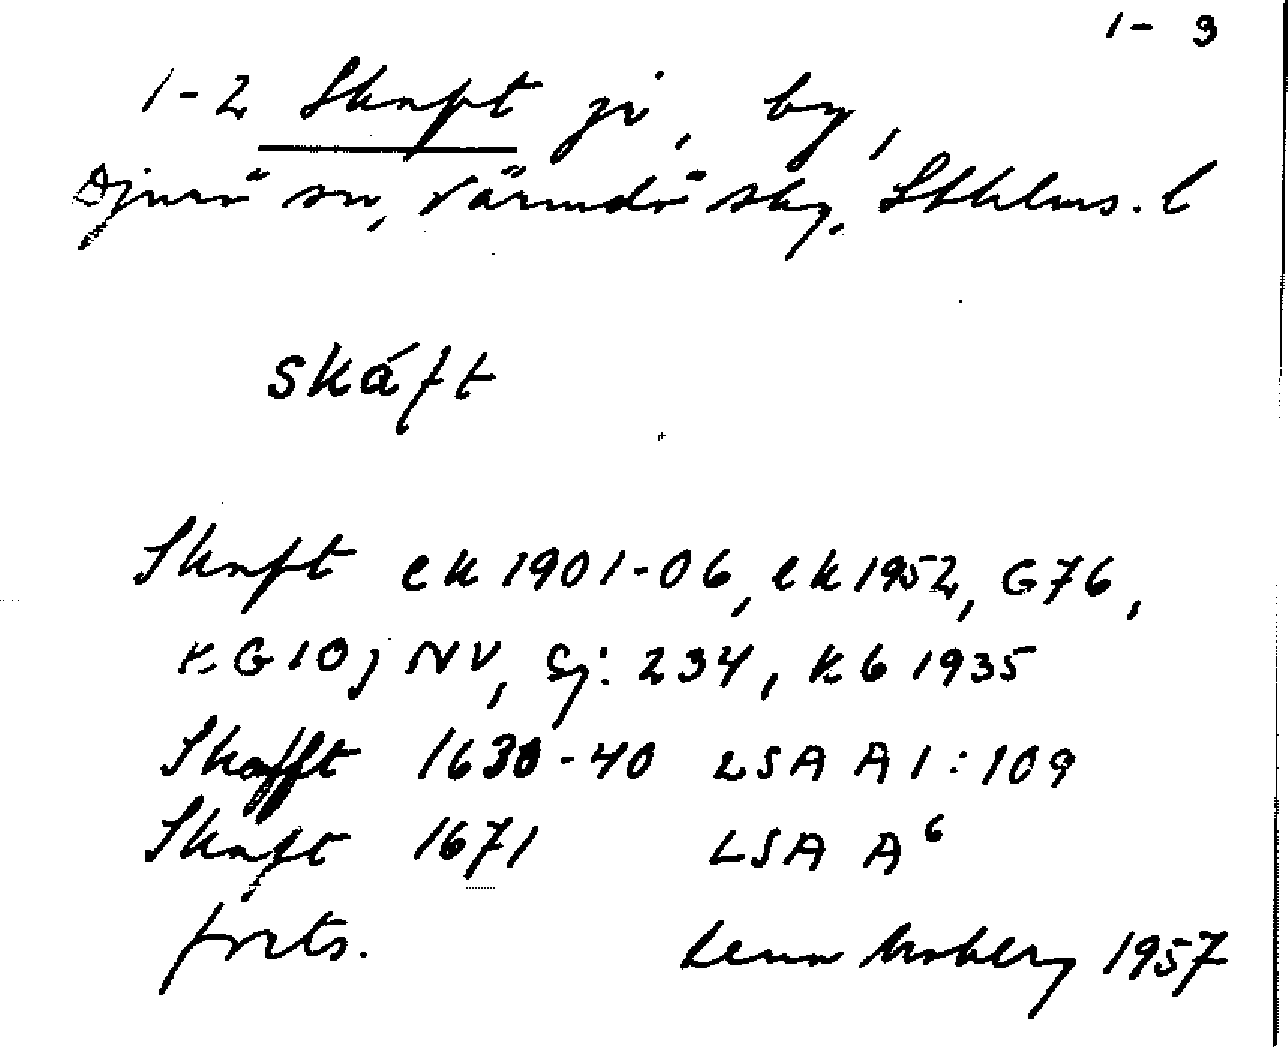 1-3
1-2 Skaft ji, by,
Djurö sn, Värmdö skg. Sthlms. l
skáft
Skaft ek 1901-06, ek 1952, G76,
KG 10j NV, Gj: 234, K6 1935
Skafft 1630-40 LSA A1:109
Skaft 1671 LSA A⁶
forts. Lena Moberg 1957